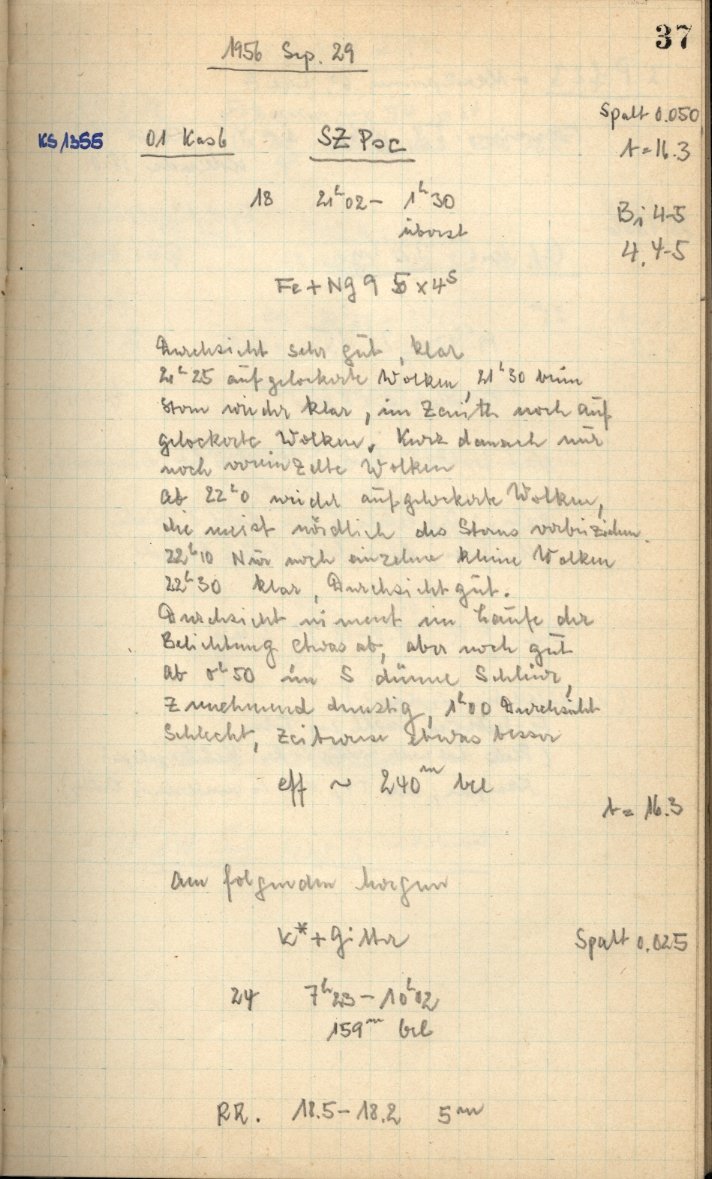 37
1956 Sep. 29
Spalt 0.050
KS 1355 01 Kas6 SZ Psc
t=16.3
18 21h02 – 1h30
Bi 4-5
überst
4, 4-5
Fe+Ng 9 5 x 4s
Durchsicht sehr gut, klar
21h25 aufgelockerte Wolken, 21h30 beim
Stern wieder klar, im Zenith noch auf
gelockerte Wolken. Kurz danach nur
noch vereinzelte Wolken
Ab 22h0 wieder aufgelockerte Wolken,
die meist nördlich des Sterns vorbeiziehen.
22h10 Nur noch einzelne kleine Wolken
22h30 klar, Durchsicht gut.
Durchsicht nimmt im Laufe der
Belichtung etwas ab, aber noch gut
Ab 0h50 im S dünne Schleier,
Zunehmend dunstig, 1h00 Durchsicht
Schlecht, Zeitweise etwas besser
eff ~ 240m bel
t= 16.3
Am folgenden Morgen
K*+Gitter
Spalt 0.025
24 7h23 – 10h02
159m bel
RR. 18.5 – 18.2 5m